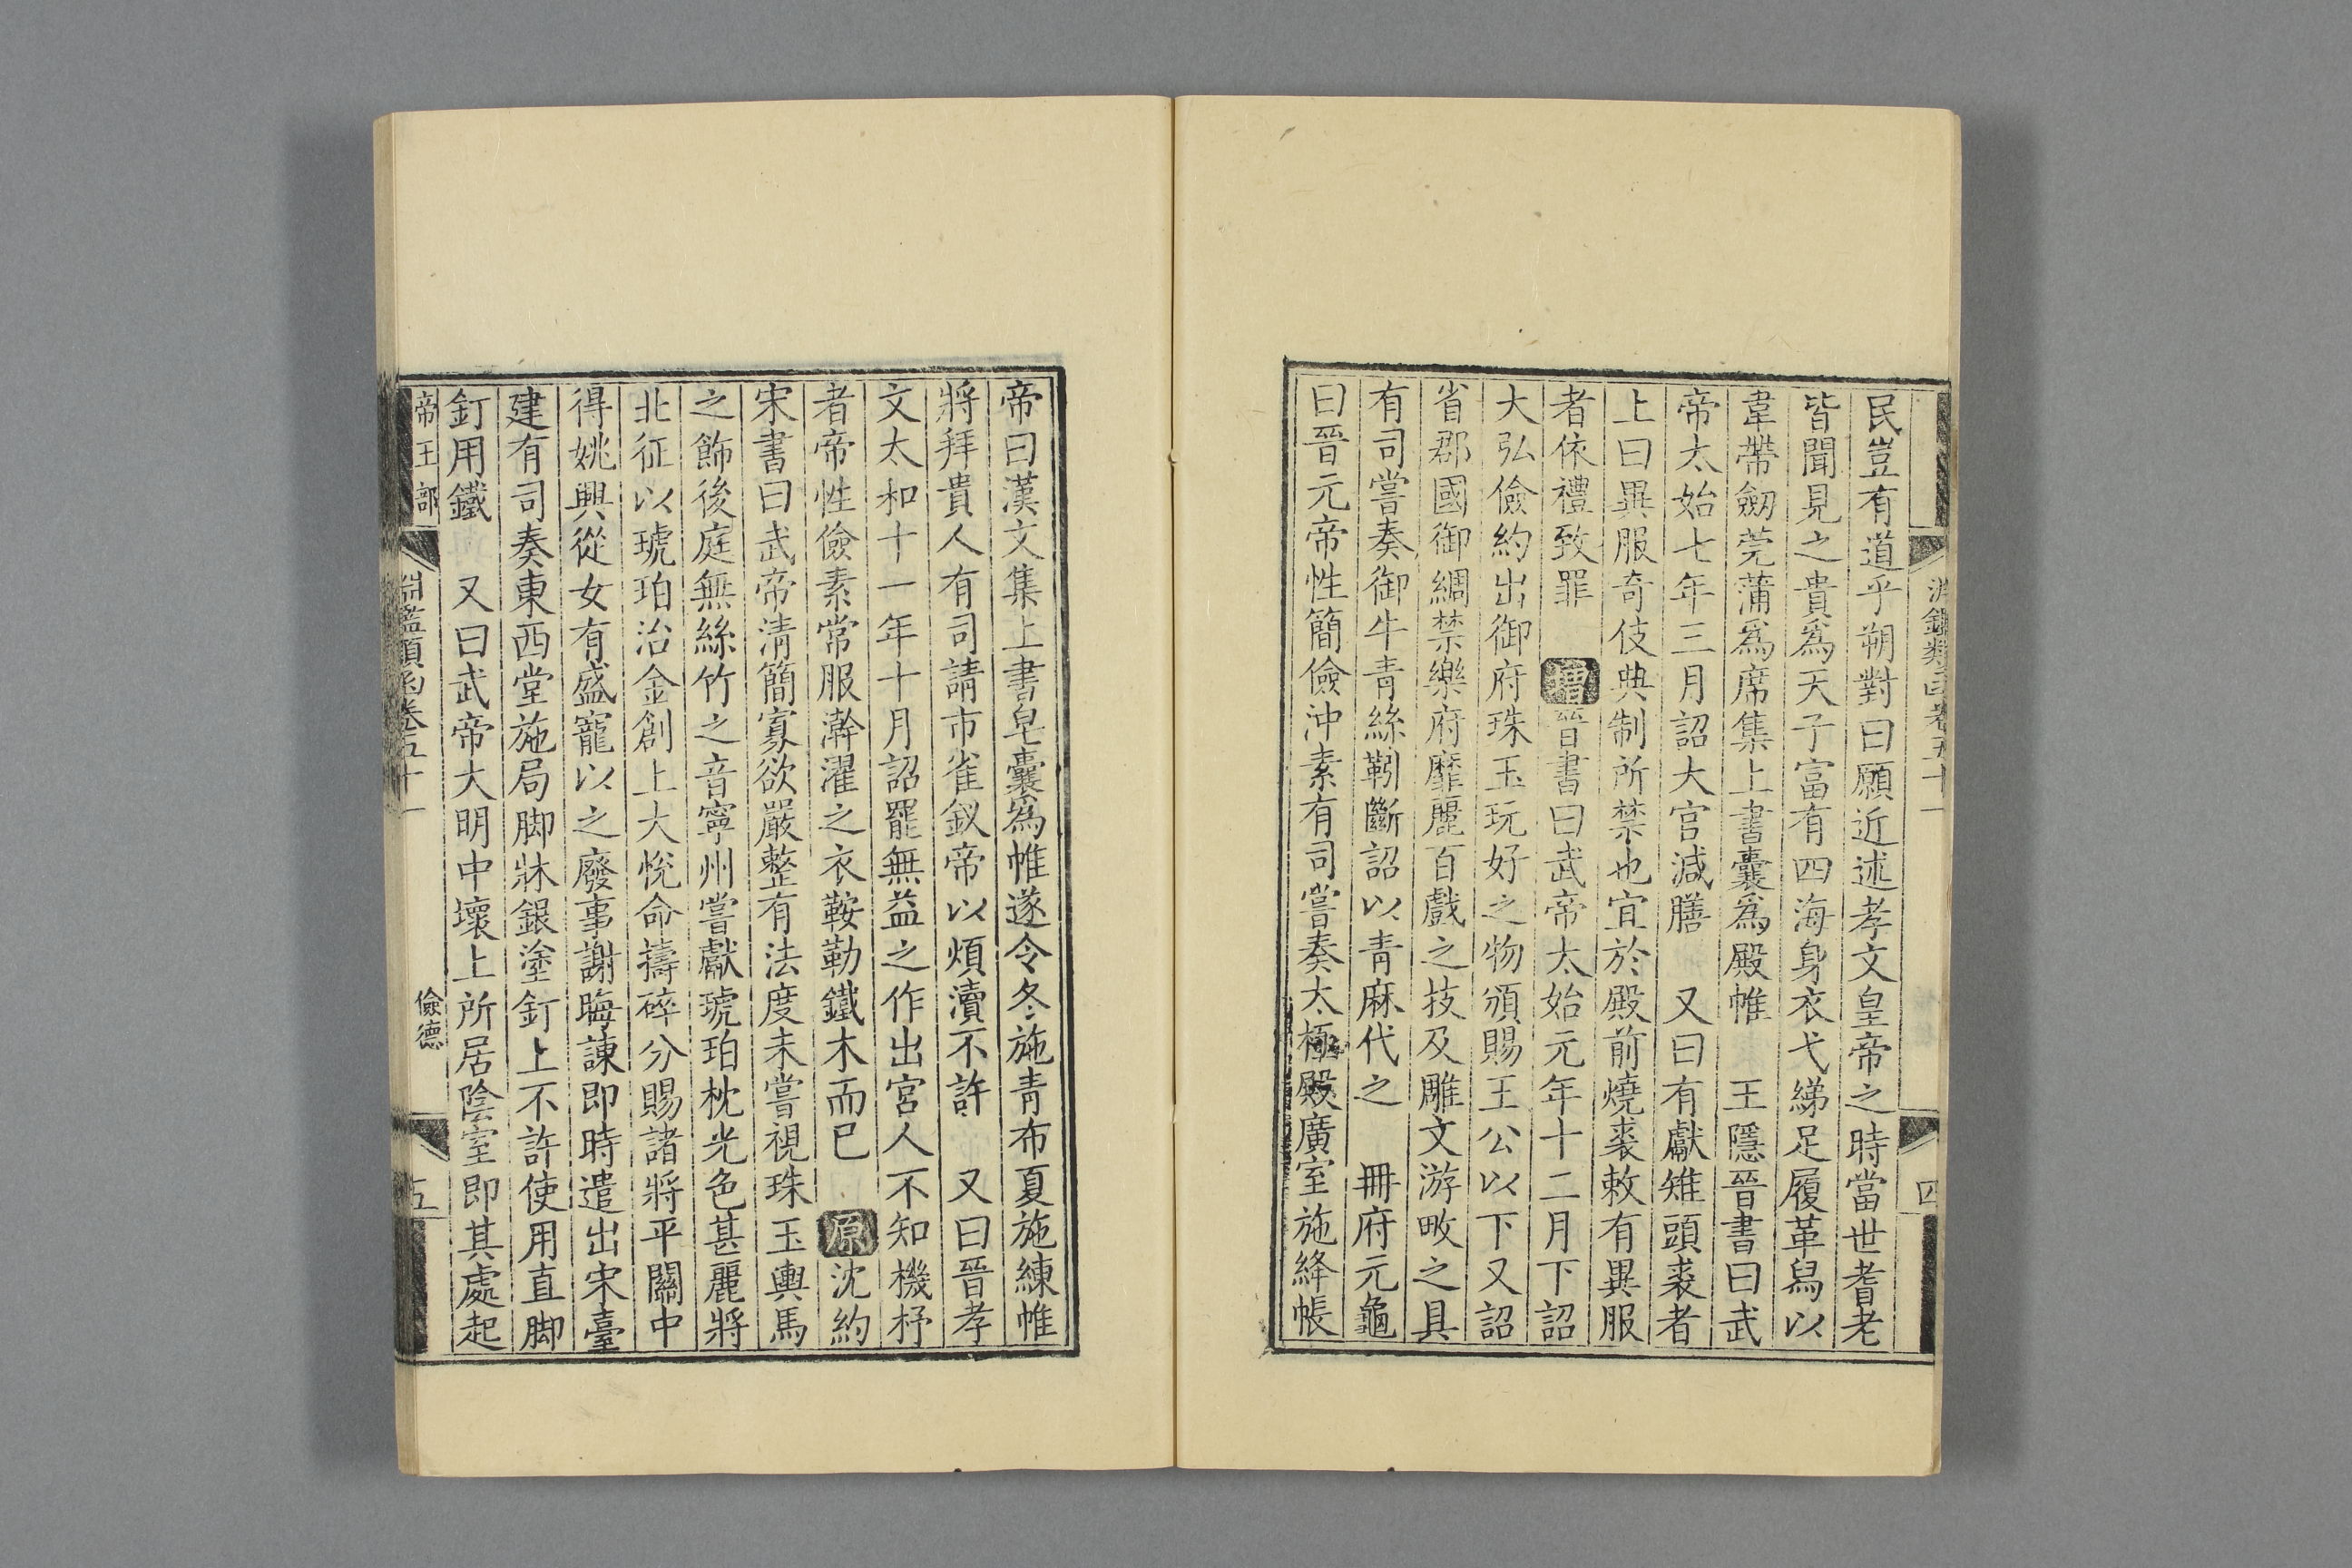 淵鑑類函卷五十一
四
民豈有道乎朔對曰願近述孝文皇帝之時當世耆老
皆聞見之貴爲天子富有四海身衣弋綈足履革舃以
韋帶劒莞蒲爲席集上書囊爲殿帷　王隱晉書曰武
帝太始七年三月詔大官減膳　又曰有獻雉頭裘者
上曰異服奇伎典制所禁也宜於殿前燒裘敕有異服
者依禮致罪　增晉書曰武帝太始元年十二月下詔
大弘儉約出御府珠玉玩好之物頒賜王公以下又詔
省郡國御綢禁樂府靡麗百戲之技及雕文游畋之具
有司嘗奏御牛青絲靷斷詔以青麻代之　冊府元龜
曰晉元帝性簡儉沖素有司嘗奏太極殿廣室施絳帳
帝曰漢文集上書皂囊爲帷遂令冬施青布夏施練帷
將拜貴人有司請市雀釵帝以煩瀆不許　又曰晉孝
文太和十一年十月詔罷無益之作出宮人不知機杼
者帝性儉素常服澣濯之衣鞍勒鐵木而已　原沈約
宋書曰武帝淸簡寡欲嚴整有法度未嘗視珠玉輿馬
之飾後庭無絲竹之音寧州嘗獻琥珀枕光色甚麗將
北征以琥珀治金創上大悅命擣碎分賜諸將平關中
得姚興從女有盛寵以之廢事謝晦諫即時遣出宋臺
建有司奏東西堂施局脚牀銀塗釘上不許使用直脚
釘用鐵　又曰武帝大明中壞上所居陰室即其處起
帝王部
淵鑑類函卷五十一
儉德
五